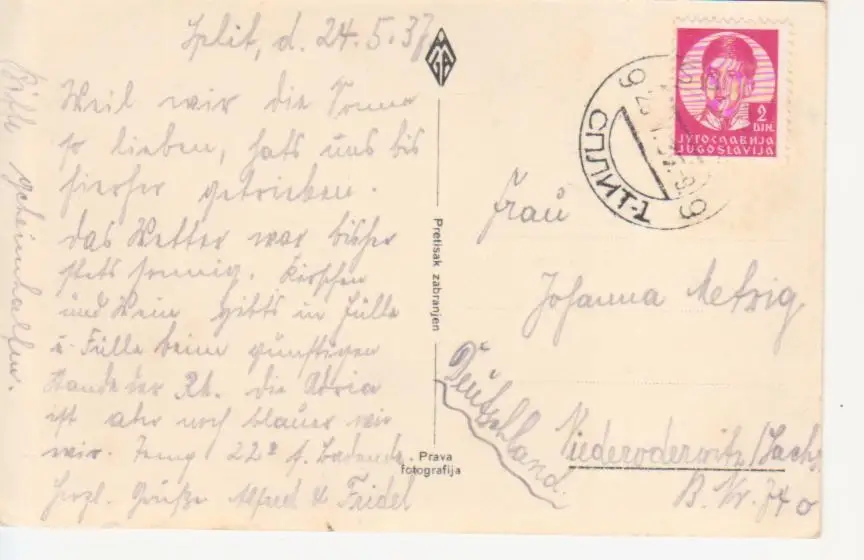 Split, d. 24.5.37
Weil wir die Sonne
so lieben, hats uns bis
hierher getrieben.
Das Wetter war bisher
stets sonnig. Kirschen
und Wein gibts in Hülle
u. Fülle beim günstigen
Stande der RM. Die Adria
ist aber noch blauer wie
wir. 22° z. Baden.
Herzl. Grüße Alfred & Fridel
Bitte geheimhalten.
MGA
Pretisak zabranjen
Prava
fotografija
2
DIN.
ЈУГОСЛАВИЈА
JUGOSLAVIJA
СПЛИТ-1
Frau
Johanna Metzig
Deutschland.
Niederoderwitz/Sachs
B. Nr. 740